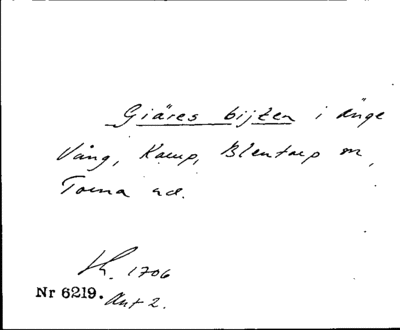 Giäres bijten i änge
Vång, Karup, Blentarp sn,
Torna hd.
1706
Nr 6219. Ant 2.